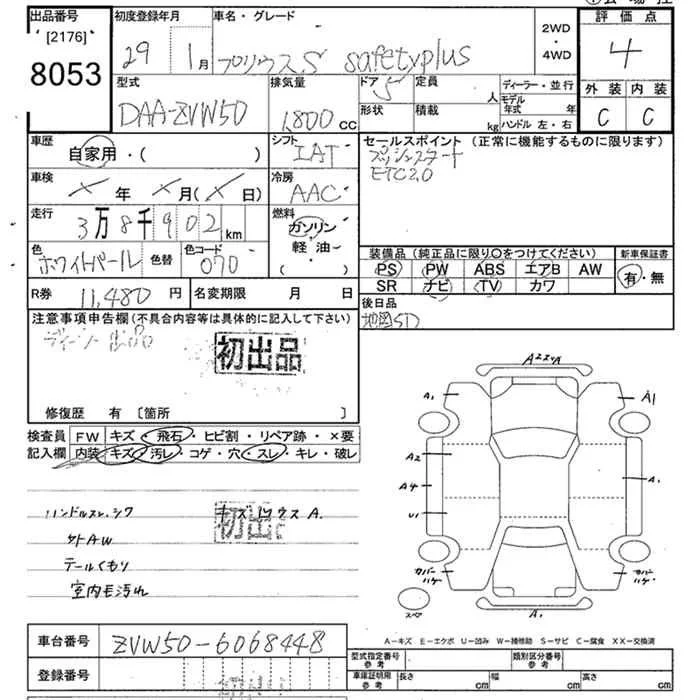 出品番号
[2176]
8053
初度登録年月
29 1月
車名・グレード
プリウス S safetyplus
2WD
・
4WD
評価点
4
外装 内装
C C
型式
DAA-ZVW50
排気量
1,800 CC
ドア 5
定員 人
形状
積載 kg
ディーラー・並行
モデル年式 年
ハンドル 左・右
車歴
自家用・( )
シフト
IAT
セールスポイント (正常に機能するものに限ります)
プッシュスタート
ETC2.0
車検
× 年 × 月(× 日)
冷房
AAC
走行
3万8千902 km
燃料
ガソリン
軽油・
( )
色
ホワイトパール
色替
色コード
070
装備品 (純正品に限り○をつけてください)
PS PW ABS エアB AW
SR ナビ TV カワ
新車保証書
有・無
R券 11,480 円
名変期限 月 日
後日品
地図SD
注意事項申告欄 (不具合内容等は具体的に記入して下さい)
初出品
修復歴 有 〔箇所 〕
検査員記入欄
FW キズ・飛石・ヒビ割・リペア跡・×要
内装 キズ・汚レ・コゲ・穴・スレ・キレ・破レ
ハンドルスレ、シワ
キズ ウス A.
初出
サト AW
テールくもり
室内毛汚れ
A1
A1
A2
A4
U1
A1
カバーハゲ
カバーハゲ
スペア
A1
A−キズ E−エクボ U−凹み W−補修跡 S−サビ C−腐食 XX−交換済
車台番号
ZVW50-6068448
登録番号
型式指定番号 参考
類別区分番号 参考
車庫証明用 参考
長さ cm
幅 cm
高さ cm